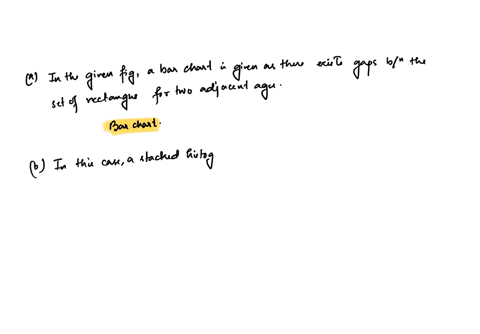 (a) In the given fig, a bar chart is given as there exists gaps b/n the
set of rectangue for two adjacent age.
Bar chart.
(b) In this case, a stacked histog